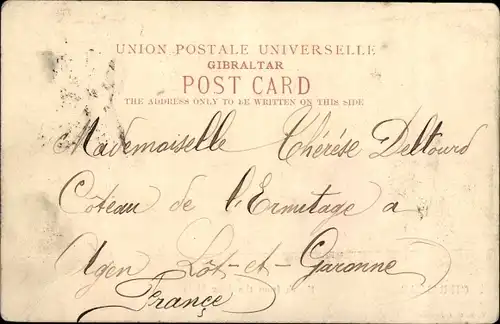 UNION POSTALE UNIVERSELLE
GIBRALTAR
POST CARD
THE ADDRESS ONLY TO BE WRITTEN ON THIS SIDE
Mademoiselle Thérèse Deltourd
Côteau de l'Ermitage a
Agen Lot-et-Garonne
France